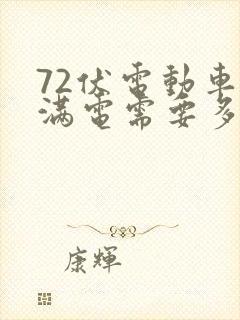 72伏電動車
滿電需要多
康輝